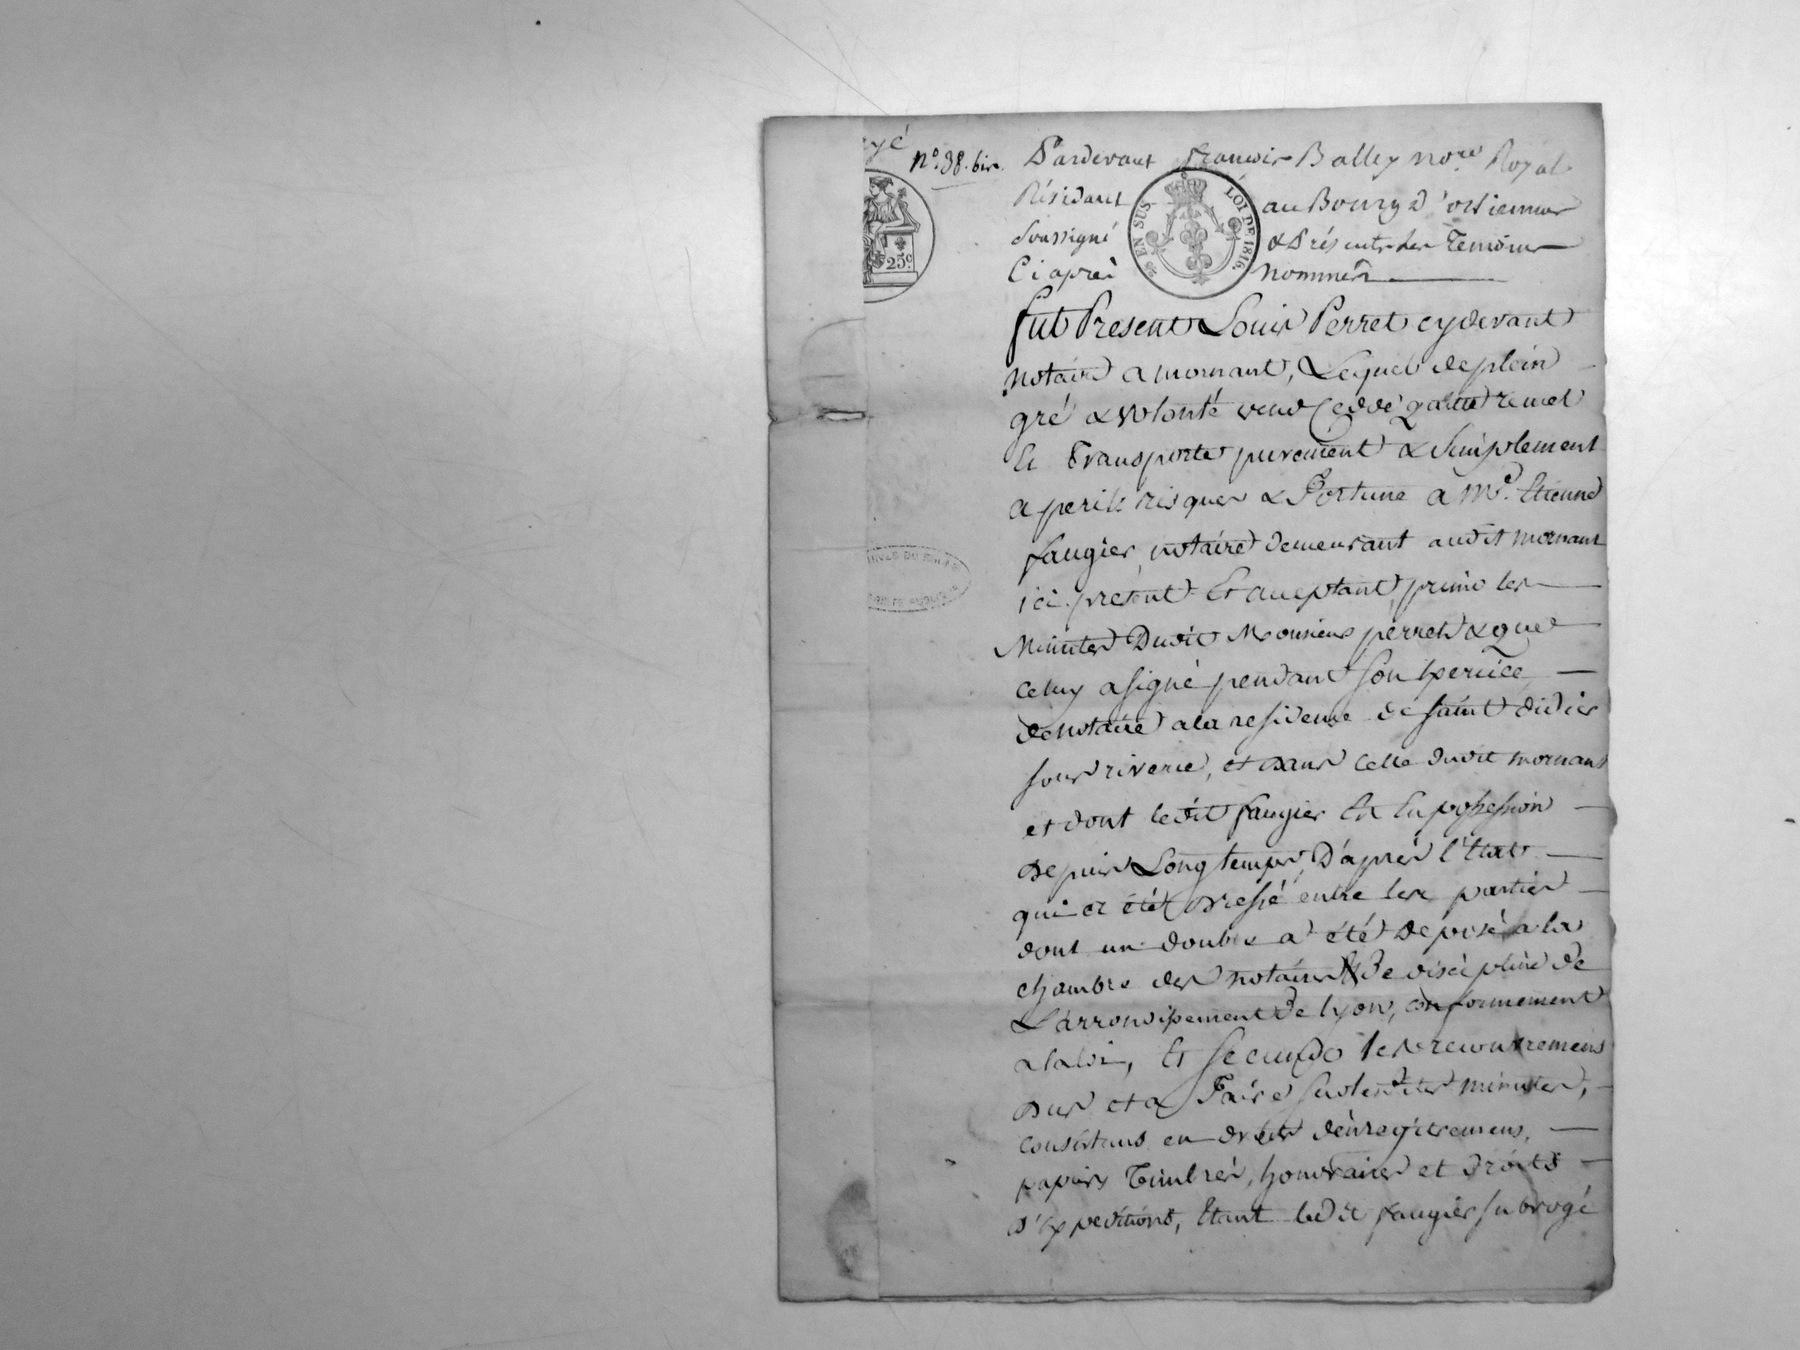 N.º 38. bis.
Pardevant françois Balley no.re Royal
Résidant au Bourg d'orliennas
Soussigné & Présents les Temoins
Ci après nommés
25 EN SUS
LOI DE 1816.
25.c
fut Present Louis Perret cydevant
notaire a mornant, Lequel de plein
gré & volonté vend Cedde quitte remet
Et Transporte purement & Simplement
a perils risques & Fortune a M.e Etienne
faugier, notaire demeurant audit mornant
ici présent Et acceptant, primo les
Minutes Dudit Monsieur perret & que
celuy a signé pendant son Exercice
de notaire a la residence de saint didier
sous riverie, et dans celle dudit mornant
et dont ledit faugier Est En possession
depuis Longtemps, D'après l'Etat
qui a été dressé entre les parties
dont un double a été déposé a la
chambre des notaires de discipline de
L'arrondissement de lyon, conformement
a la loi, Et secundo les recouvremens
dus et a Faire sur lesdites minutes,
consistans en droits d'enregitremens,
papiers Timbrés, honoraires et droits
d'Expeditions, Etant ledit faugier subrogé